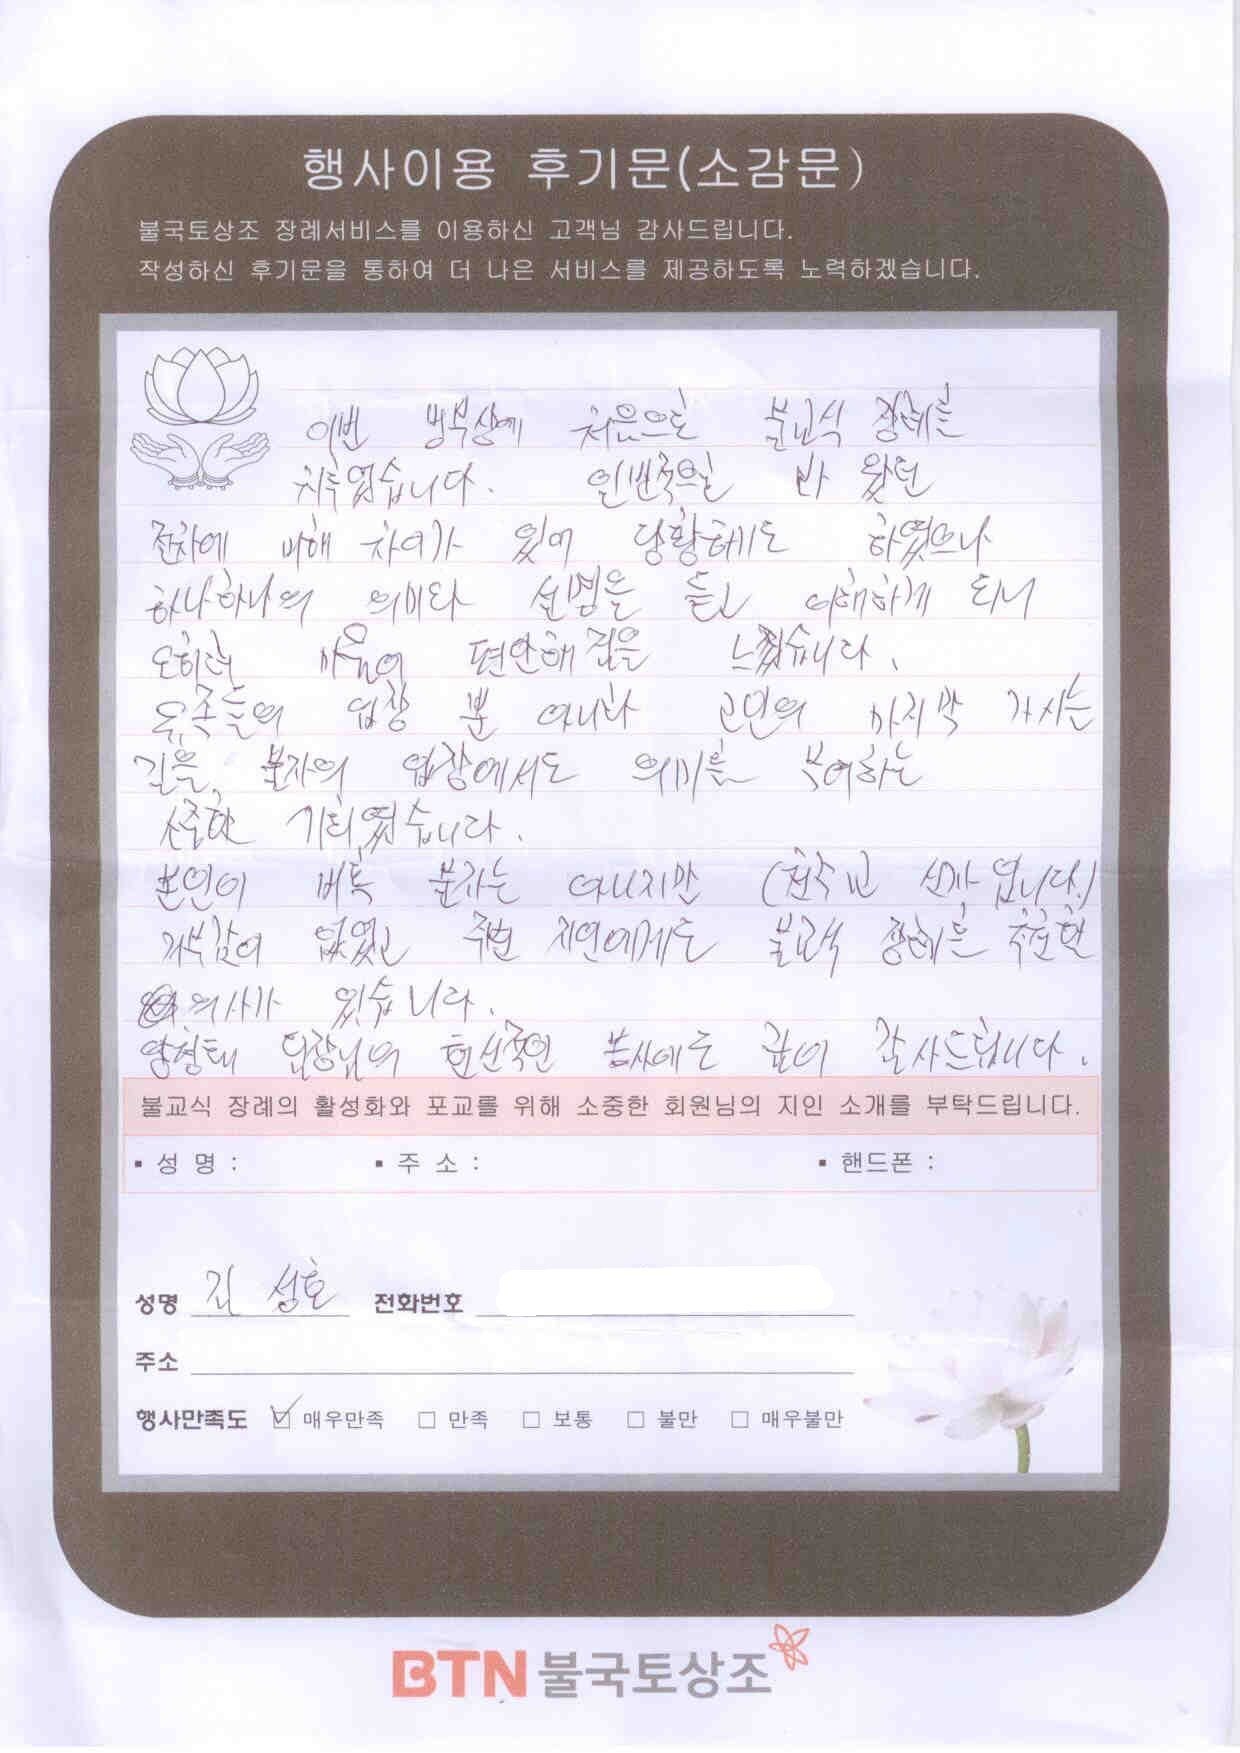 행사이용 후기문(소감문)
불국토상조 장례서비스를 이용하신 고객님 감사드립니다.
작성하신 후기문을 통하여 더 나은 서비스를 제공하도록 노력하겠습니다.
이번 빙부상에 처음으로 불교식 장례를
치루었습니다. 일반적으로 봐 왔던
절차에 비해 차이가 있어 당황해도 하였으나
하나하나의 의미와 설명을 듣고 이해하게 되니
오히려 마음이 편안해 짐을 느꼈습니다.
유족들의 입장 뿐 아니라 고인의 마지막 가시는
길을, 불자의 입장에서도 의미를 부여하는
소중한 기회였습니다.
본인이 비록 불자는 아니지만 (천주교 신자 입니다.)
거부감이 없었고 주변 지인에게도 불교식 장례를 추천할
의사가 있습니다.
양형태 팀장님의 헌신적인 봉사에도 깊이 감사드립니다.
불교식 장례의 활성화와 포교를 위해 소중한 회원님의 지인 소개를 부탁드립니다.
▪ 성 명 : ▪ 주 소 : ▪ 핸드폰 :
성명 김 성호 전화번호
주소
행사만족도 ☑ 매우만족 □ 만족 □ 보통 □ 불만 □ 매우불만
BTN 불국토상조